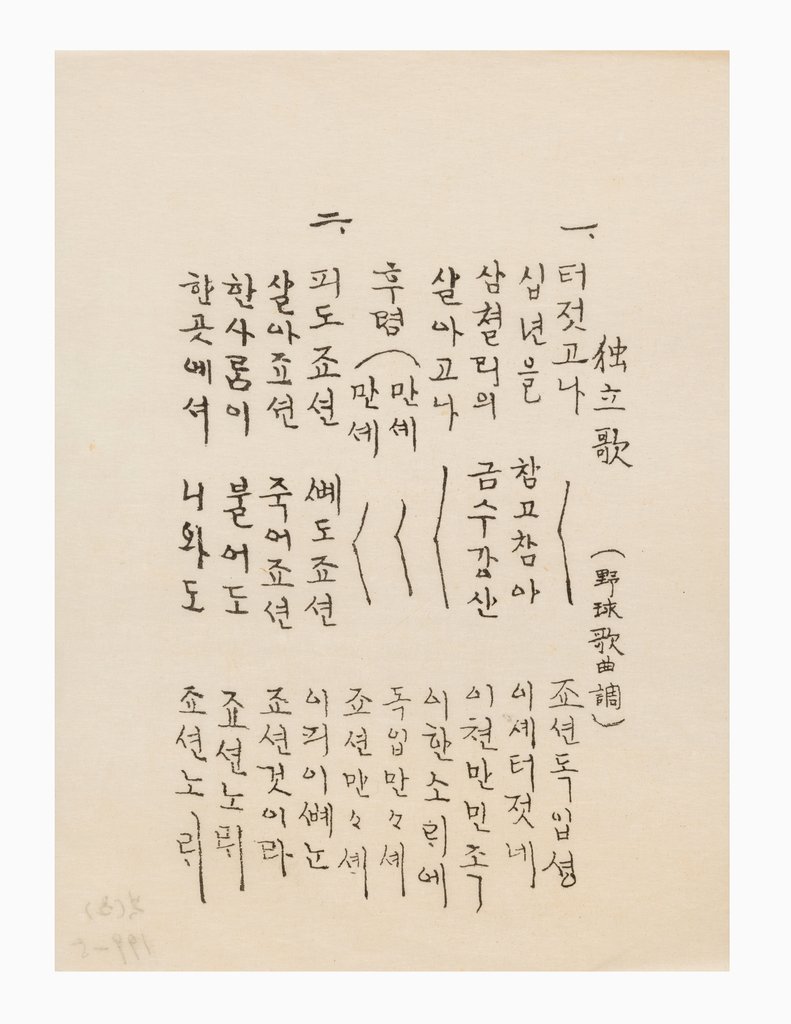 独立歌 (野球歌曲調)
一、 터젓고나 〱 죠션독입셩
십년을 참고참아 이셰터젓네
삼쳘리의 금수강산 이쳔만민죡
살아고나 〱 이한소ᄅᆡ에
후렴 (만셰 〱 독입만々셰
만셰 〱 죠션만々셰
二、 피도죠션 ᄲᅨ도죠션 이피이ᄲᅨᄂᆞᆫ
살아죠션 죽어죠션 죠션것이라
한사ᄅᆞᆷ이 불어도 죠션노ᄅᆡ
한곳에셔 니와도 죠션노ᄅᆡ